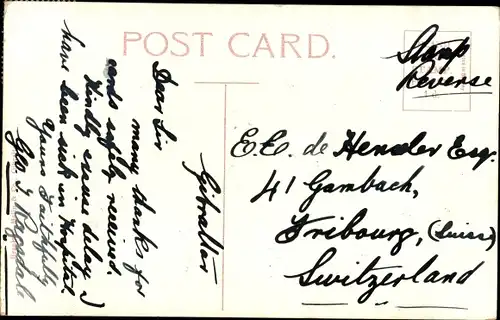 POST CARD.
Stamp
Reverse
Gibraltar
Dear Sir
many thanks for
cards safely received.
Kindly excuse delay I
have been sick in Hospital.
Yours Faithfully
Geo. J. Ragsdale
E.E. de Hensler Esq.
41 Gambach,
Fribourg, (Suisse)
Switzerland